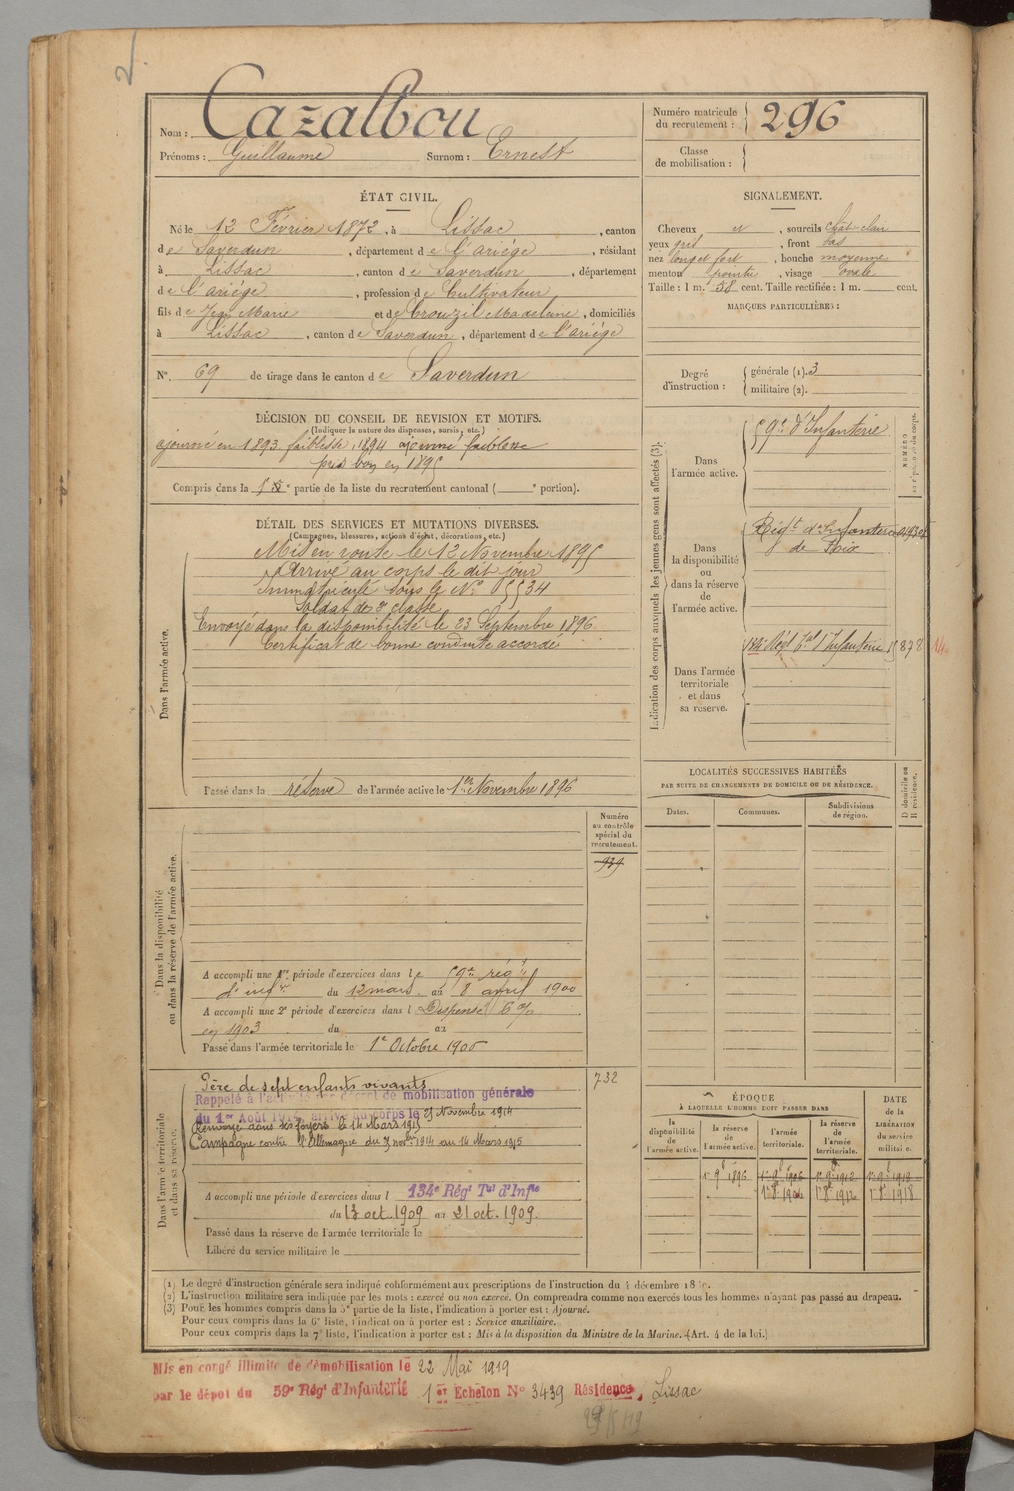 2.
Nom : Cazalbou
Prénoms : Guillaume Surnom : Ernest
Numéro matricule du recrutement : 296
Classe de mobilisation :
ÉTAT CIVIL.
Né le 12 Février 1872, à Lissac, canton
de Saverdun, département de l'ariége, résidant
à Lissac, canton de Saverdun, département
de l'ariége, profession de Cultivateur
fils de Jean Marie et de Crouzil Madeleine, domiciliés
à Lissac, canton de Saverdun, département de l'ariége
N° 69 de tirage dans le canton de Saverdun
SIGNALEMENT.
Cheveux et, sourcils chât-clair
yeux gris, front bas
nez long et fort, bouche moyenne
menton pointu, visage ovale
Taille : 1 m. 58 cent. Taille rectifiée : 1 m. cent.
MARQUES PARTICULIÈRES :
Degré d'instruction : générale (1). 3
militaire (2).
DÉCISION DU CONSEIL DE REVISION ET MOTIFS.
(Indiquer la nature des dispenses, sursis, etc.)
ajourné en 1893 faiblesse, 1894 ajourné faiblesse
pris bon en 1895
Compris dans la partie de la liste du recrutement cantonal ( e portion).
DÉTAIL DES SERVICES ET MUTATIONS DIVERSES.
(Campagnes, blessures, actions d'éclat, décorations, etc.)
Dans l'armée active.
Mis en route le 12 Novembre 1895
Arrivé au corps le dit jour
Immatriculé sous le N° 5534
Soldat de 2e classe
Envoyé dans la disponibilité le 23 Septembre 1896
Certificat de bonne conduite accordé
Passé dans la réserve de l'armée active le 1er Novembre 1896
Indication des corps auxquels les jeunes gens sont affectés (3).
NUMÉRO
Dans l'armée active.
59e d'Infanterie
Dans la disponibilité ou dans la réserve de l'armée active.
Régt d'Infanterie
de Foix
Dans l'armée territoriale et dans sa réserve.
134e Régt Tal d'Infanterie 15878
LOCALITÉS SUCCESSIVES HABITÉES
PAR SUITE DE CHANGEMENTS DE DOMICILE OU DE RÉSIDENCE.
Dates. Communes. Subdivisions de région. D domicile ou R résidence.
Dans la disponibilité ou dans la réserve de l'armée active.
Numéro au contrôle spécial du recrutement.
939
A accompli une 1re période d'exercices dans le 59e régt
d'infie du 12 mars au 8 avril 1900
A accompli une 2e période d'exercices dans l Dispensé 6 %
en 1903 du au
Passé dans l'armée territoriale le 1er Octobre 1906
Dans l'armée territoriale et dans sa réserve.
732
Père de sept enfants vivants
Rappelé à l'activité par décret de mobilisation générale
du 1er Août 1914, arrivé au corps le 25 Novembre 1914
Renvoyé dans ses foyers le 14 Mars 1915
Campagne contre l'Allemagne du novbre 1914 au 14 Mars 1915
A accompli une période d'exercices dans l 134e Régt Tal d'Infie
du 13 oct. 1909 au 21 oct. 1909.
Passé dans la réserve de l'armée territoriale le
Libéré du service militaire le
ÉPOQUE
À LAQUELLE L'HOMME DOIT PASSER DANS
la disponibilité de l'armée active. la réserve de l'armée active. l'armée territoriale. la réserve de l'armée territoriale.
DATE de la LIBÉRATION du service militaire.
1er 9bre 1896 1er 9bre 1906 1er 9bre 1912 1er 9bre 1918
1er 8bre 1906 1er 8bre 1912 1er 8bre 1918
(1) Le degré d'instruction générale sera indiqué conformément aux prescriptions de l'instruction du 4 décembre 18
(2) L'instruction militaire sera indiquée par les mots : exercé ou non exercé. On comprendra comme non exercés tous les hommes n'ayant pas passé au drapeau.
(3) Pour les hommes compris dans la 5e partie de la liste, l'indication à porter est : Ajourné.
Pour ceux compris dans la 6e liste, l'indication à porter est : Service auxiliaire.
Pour ceux compris dans la 7e liste, l'indication à porter est : Mis à la disposition du Ministre de la Marine. (Art. 4 de la loi.)
Mis en congé illimité de démobilisation le 22 Mai 1919
par le dépôt du 59e Régt d'Infanterie 1er Echelon N° 3439 Résidence, Lissac